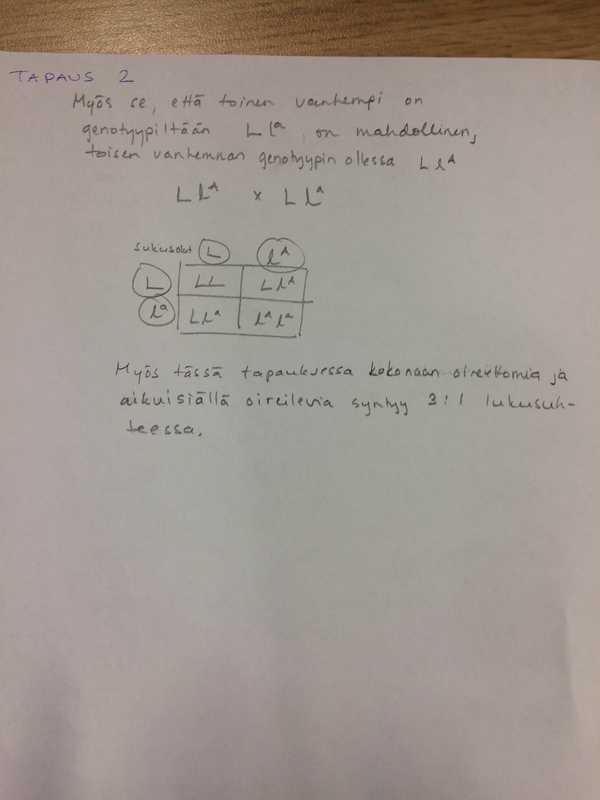 TAPAUS 2
Myös se, että toinen vanhempi on
genotyypiltään L lᵃ, on mahdollinen,
toisen vanhemman genotyypin ollessa L lᴬ
L lᴬ x L lᵃ
sukusolut L lᴬ
L LL L lᴬ
lᵃ L lᵃ lᴬ lᵃ
Myös tässä tapauksessa kokonaan oireettomia ja
aikuisiällä oireilevia syntyy 3:1 lukusuh-
teessa.